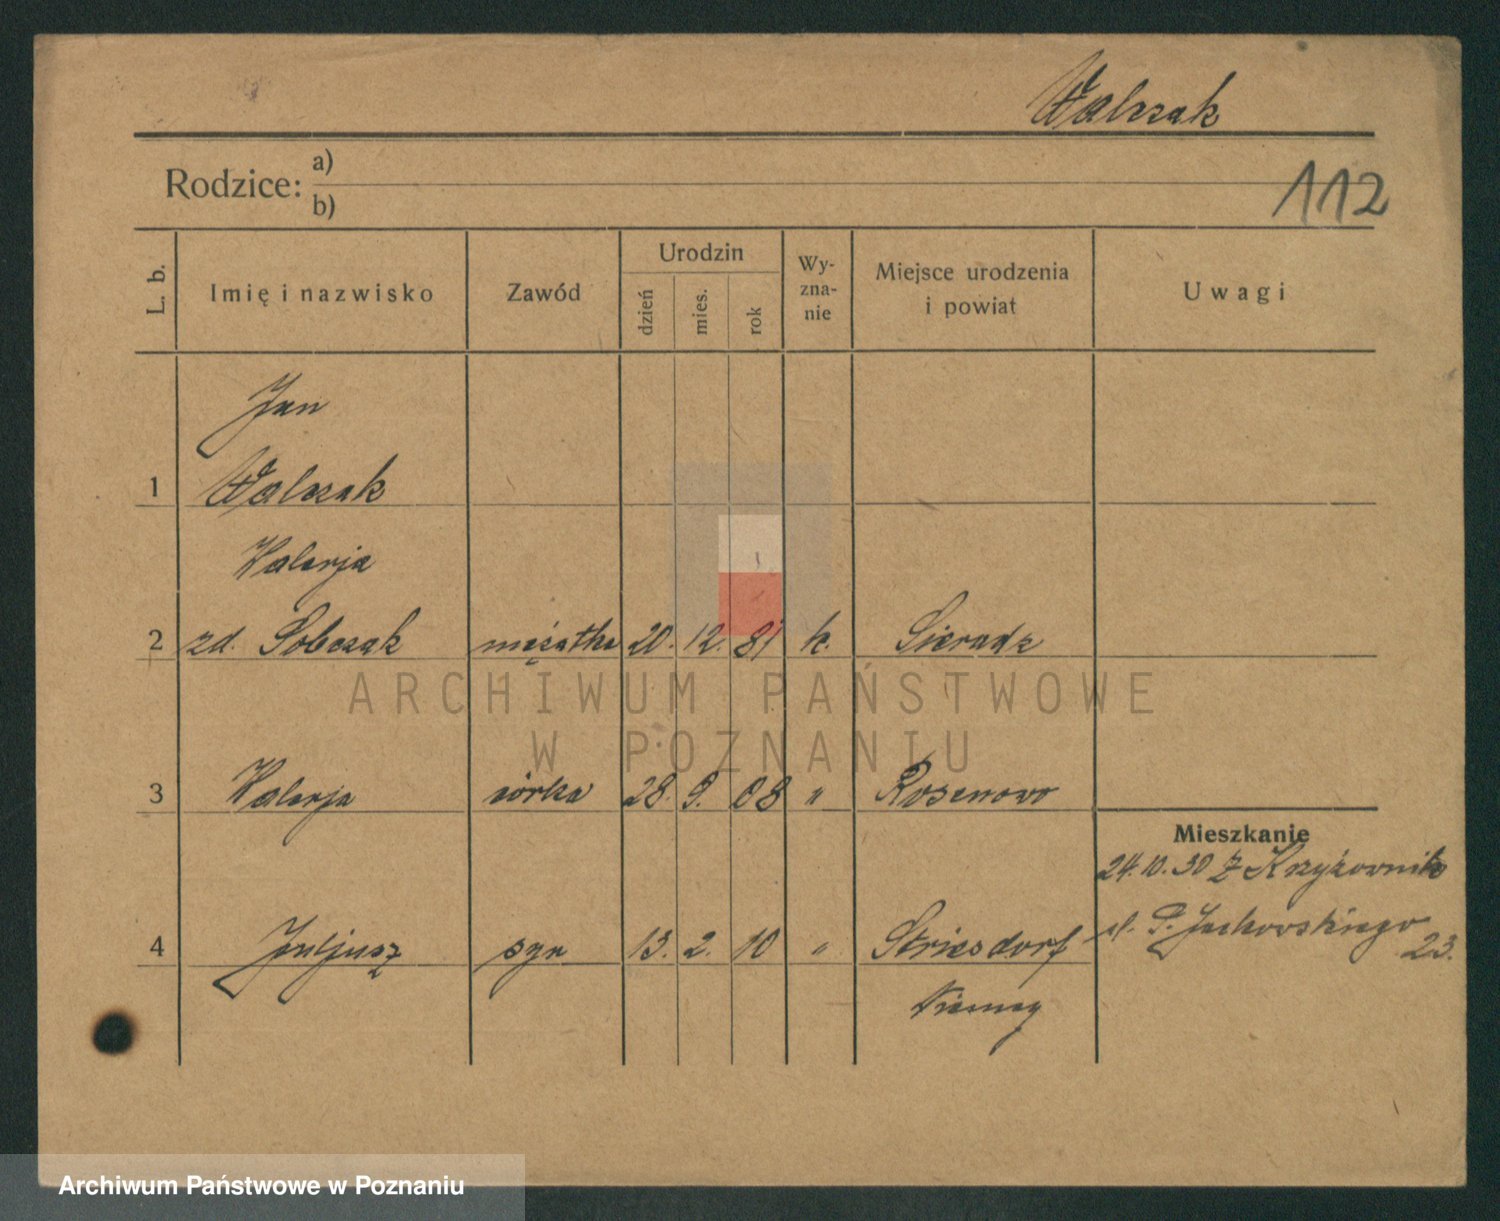 Walczak
Rodzice: a)
b)
112
L. b. Imię i nazwisko Zawód Urodzin dzień mies. rok Wy-zna-nie Miejsce urodzenia i powiat Uwagi
Jan
1 Walczak
Walerja
2 zd. Sobczak mężatka 20. 12. 81 k. Sieradz
ARCHIWUM PAŃSTWOWE
W POZNANIU
3 Walerja córka 28. 9. 08 " Rosenowo
Mieszkanie
24.10.30 z Krzyżownik
4 Juljusz syn 13. 2. 10 " Striesdorf ul. P. Jackowskiego
23.
Niemcy
Archiwum Państwowe w Poznaniu